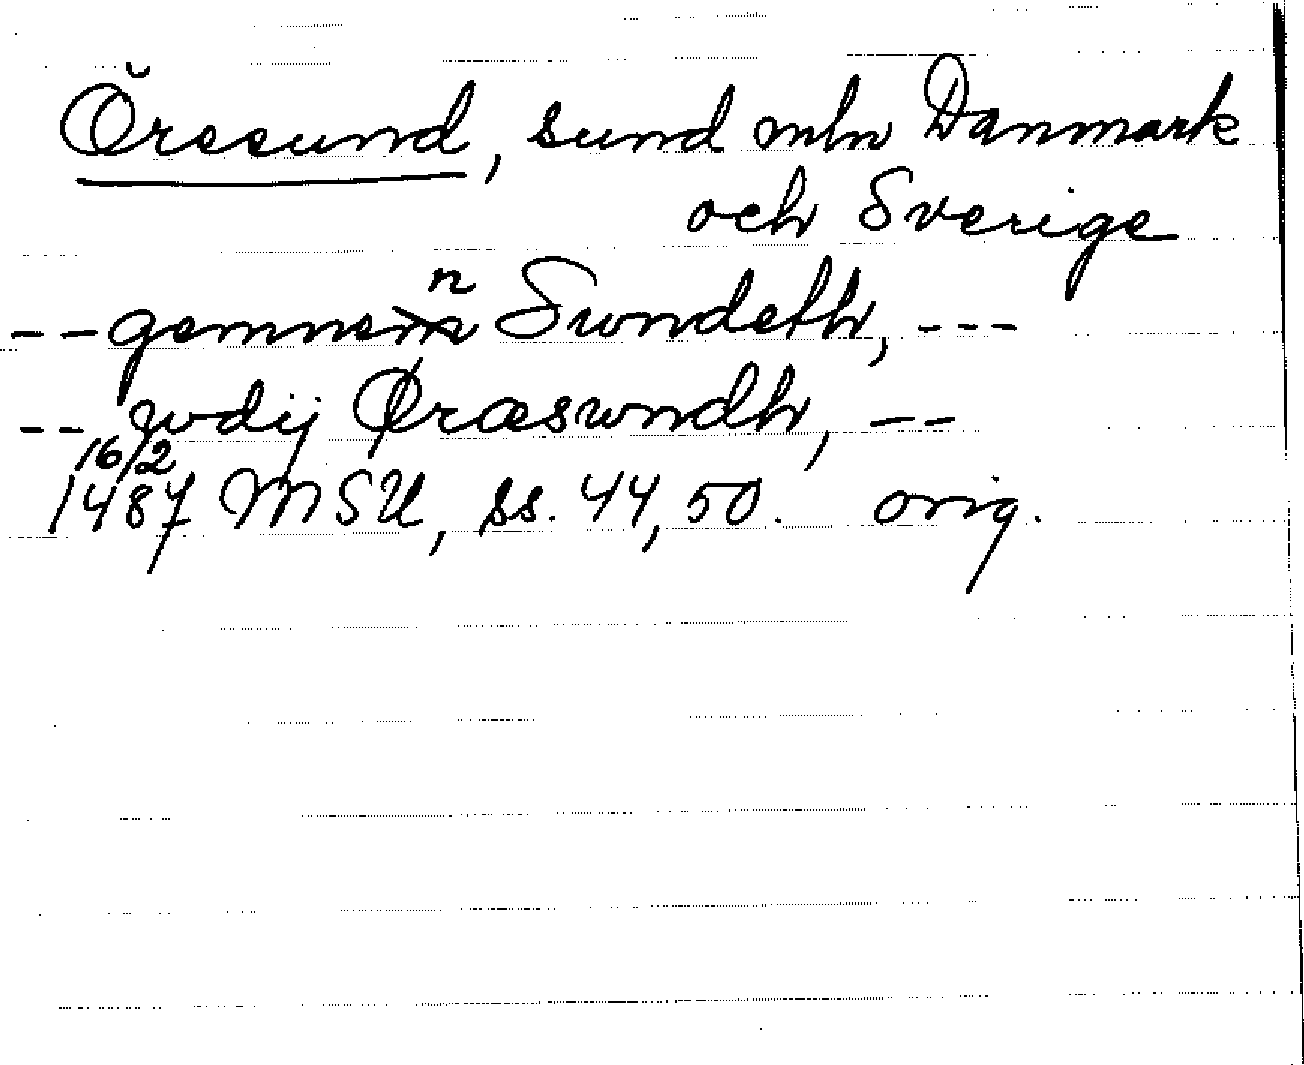 Öresund, sund mln Danmark
och Sverige
-- gemnen Swndeth, ---
-- wdij Øræswndh, --
16/2
1487 MSU, ss. 44, 50. orig.